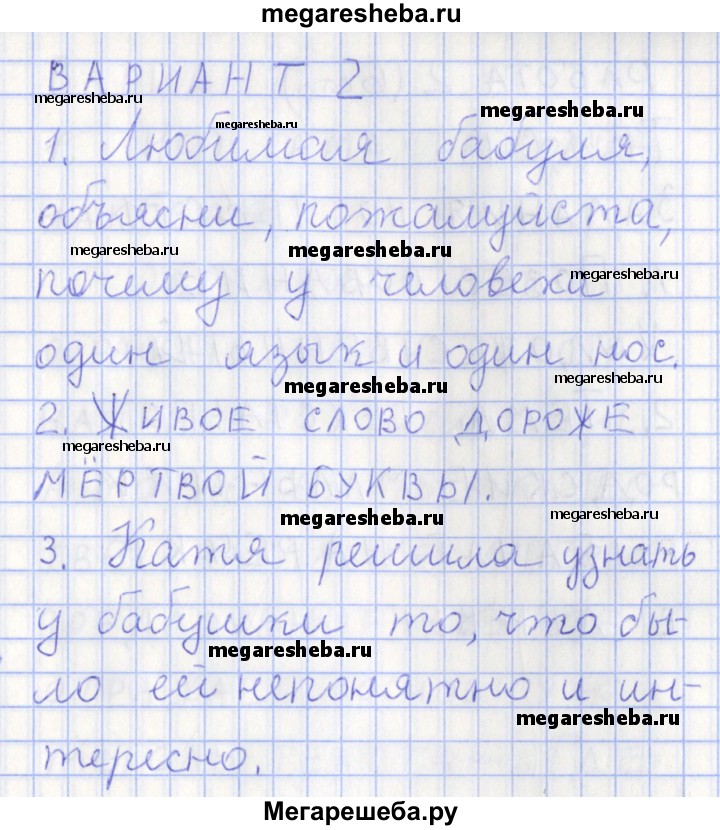 megaresheba.ru
ВАРИАНТ 2
megaresheba.ru
megaresheba.ru
megaresheba.ru
1. Любимая бабуля,
объясни, пожалуйста,
megaresheba.ru
megaresheba.ru
megaresheba.ru
почему у человека
один язык и один нос.
megaresheba.ru
megaresheba.ru
2. ЖИВОЕ СЛОВО ДОРОЖЕ
megaresheba.ru
МЁРТВОЙ БУКВЫ.
megaresheba.ru
megaresheba.ru
3. Катя решила узнать
у бабушки то, что бы-
megaresheba.ru
ло ей непонятно и ин-
megaresheba.ru
тересно.
Мегарешеба.ру